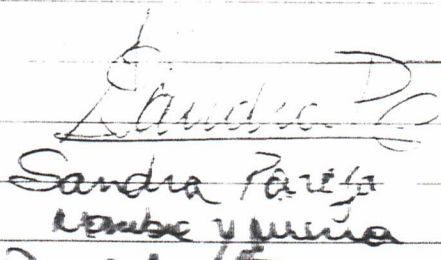 Sandra P
Sandra Pareja
Nombre y